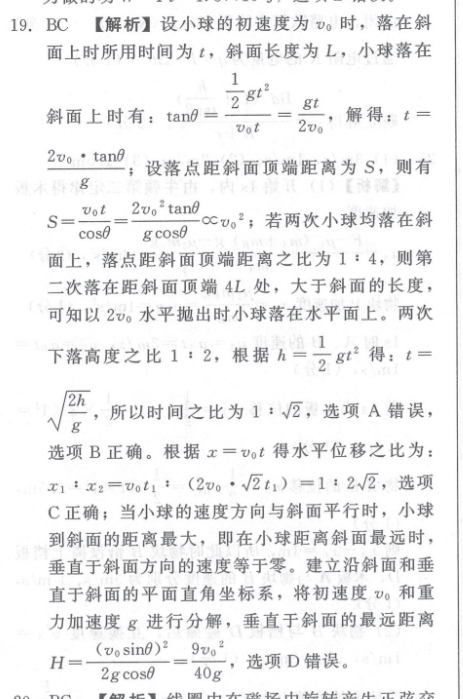 19. BC 【解析】设小球的初速度为 v₀ 时，落在斜
面上时所用时间为 t，斜面长度为 L，小球落在
斜面上时有：tanθ = (1/2 gt²)/(v₀t) = gt/(2v₀)，解得：t =
(2v₀·tanθ)/g；设落点距斜面顶端距离为 S，则有
S = v₀t/cosθ = 2v₀²tanθ/(g cosθ) ∝ v₀²；若两次小球均落在斜
面上，落点距斜面顶端距离之比为 1∶4，则第
二次落在距斜面顶端 4L 处，大于斜面的长度，
可知以 2v₀ 水平抛出时小球落在水平面上。两次
下落高度之比 1∶2，根据 h = 1/2 gt² 得：t =
√(2h/g)，所以时间之比为 1∶√2，选项 A 错误，
选项 B 正确。根据 x = v₀t 得水平位移之比为：
x₁∶x₂ = v₀t₁∶（2v₀·√2t₁）= 1∶2√2，选项
C 正确；当小球的速度方向与斜面平行时，小球
到斜面的距离最大，即在小球距离斜面最远时，
垂直于斜面方向的速度等于零。建立沿斜面和垂
直于斜面的平面直角坐标系，将初速度 v₀ 和重
力加速度 g 进行分解，垂直于斜面的最远距离
H = (v₀sinθ)²/(2gcosθ) = 9v₀²/(40g)，选项 D 错误。